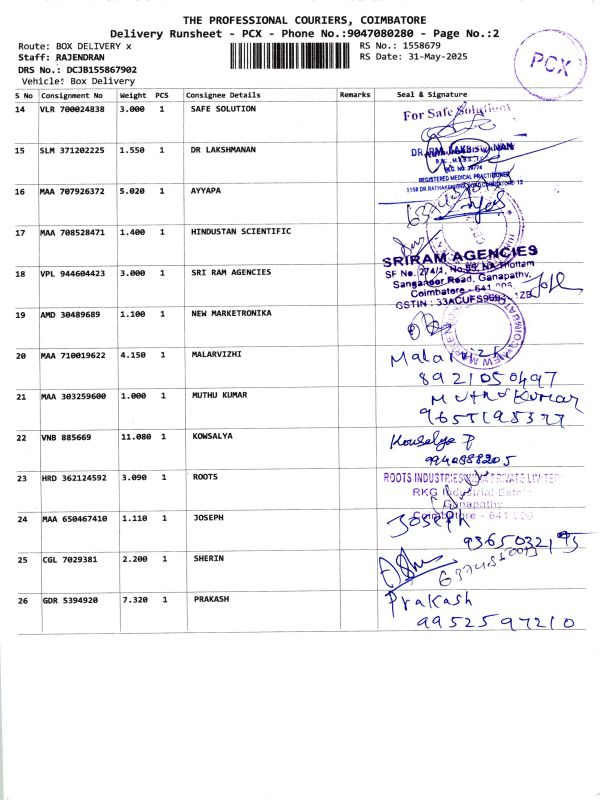 THE PROFESSIONAL COURIERS, COIMBATORE
Delivery Runsheet - PCX - Phone No.:9047080280 - Page No.:2
Route: BOX DELIVERY x RS No.: 1558679
Staff: RAJENDRAN RS Date: 31-May-2025
DRS No.: DCJB155867902
Vehicle: Box Delivery
PCX
S No Consignment No Weight PCS Consignee Details Remarks Seal & Signature
14 VLR 700024838 3.000 1 SAFE SOLUTION For Safe Solutions
15 SLM 371202225 1.550 1 DR LAKSHMANAN
REGISTERED MEDICAL PRACTITIONER
16 MAA 707926372 5.020 1 AYYAPA
17 MAA 708528471 1.400 1 HINDUSTAN SCIENTIFIC
SRIRAM AGENCIES
18 VPL 944604423 3.000 1 SRI RAM AGENCIES
SF No. 274/1, Thottam
Sanganoor Road, Ganapathy,
Coimbatore - 641 006.
GSTIN :
19 AMD 30489689 1.100 1 NEW MARKETRONIKA
20 MAA 710019622 4.150 1 MALARVIZHI Malarvizhi
8921050497
21 MAA 303259600 1.000 1 MUTHU KUMAR Muthu Kumar
9655198377
22 VNB 885669 11.080 1 KOWSALYA Kowsalya P
9940888205
23 HRD 362124592 3.090 1 ROOTS ROOTS INDUSTRIES INDIA PRIVATE LIMITED
RKG Industrial Estate
Ganapathy
Coimbatore - 641 006
24 MAA 650467410 1.110 1 JOSEPH JOSEPH
9365032195
25 CGL 7029381 2.200 1 SHERIN
26 GDR 5394920 7.320 1 PRAKASH Prakash
9952597210